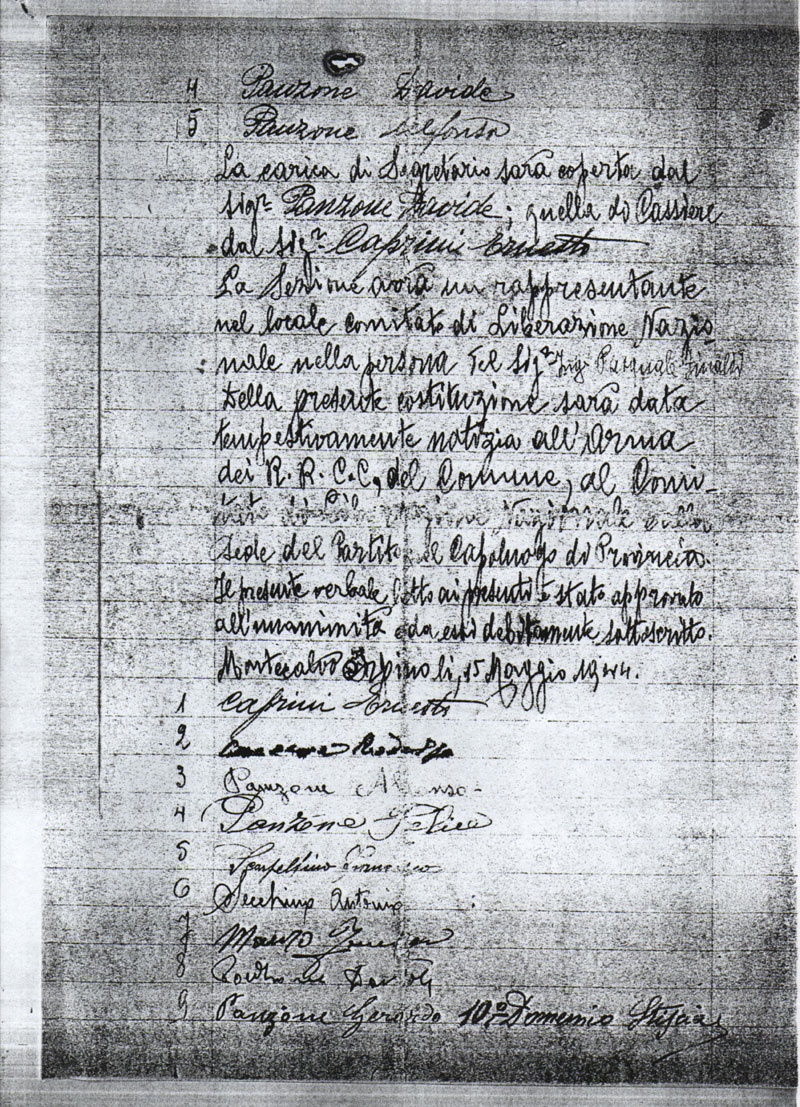 4 Panzone Davide
5 Panzone Alfonso
La carica di Segretario sarà coperta dal
Sigr. Panzone Davide; quella di Cassiere
dal Sigr. Caprini Ernesto
La Sezione avrà un rappresentante
nel locale comitato di Liberazione Nazio-
nale nella persona del Sigr Ing. Pasquale
Della presente costituzione sarà data
tempestivamente notizia all'Arma
dei R.R.C.C, del Comune, al Comi-
Nazionale
Sede del Partito del Capoluogo di Provincia.
Il presente verbale letto ai presenti è stato approvato
all'unanimità e da essi debitamente sottoscritto.
Montecalvo Irpino li, 15 Maggio 1944.
1 Caprini Ernesto
2
3 Panzone Alfonso
4 Panzone Felice
5
6 Antonio
7
8
9 Panzone Gerardo 10° Domenico Stiscia